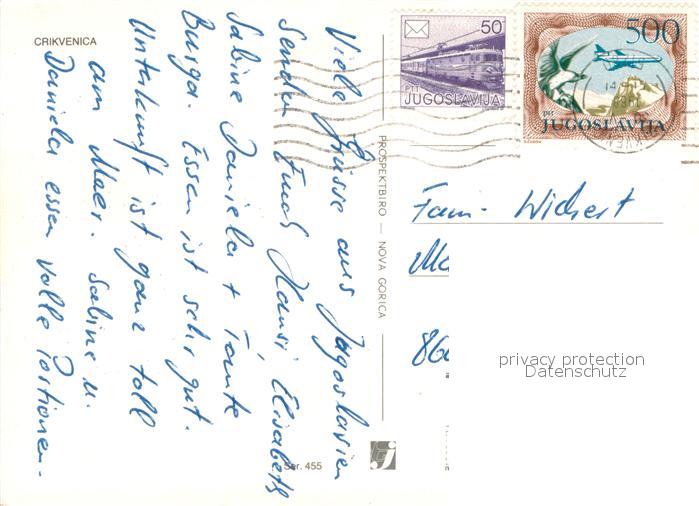 CRIKVENICA
Viele Grüsse aus Jugoslavien
senden Euch Hansi Elisabeth
Sabine Daniela + Tante
Burga. Essen ist sehr gut.
Unterkunft ist ganz toll
am Meer. Sabine u.
Daniela essen volle Portionen.
PROSPEKTBIRO — NOVA GORICA
Ser. 455
50
PTT
JUGOSLAVIJA
500
PTT
JUGOSLAVIJA
Fam. Wichert
86
privacy protection
Datenschutz